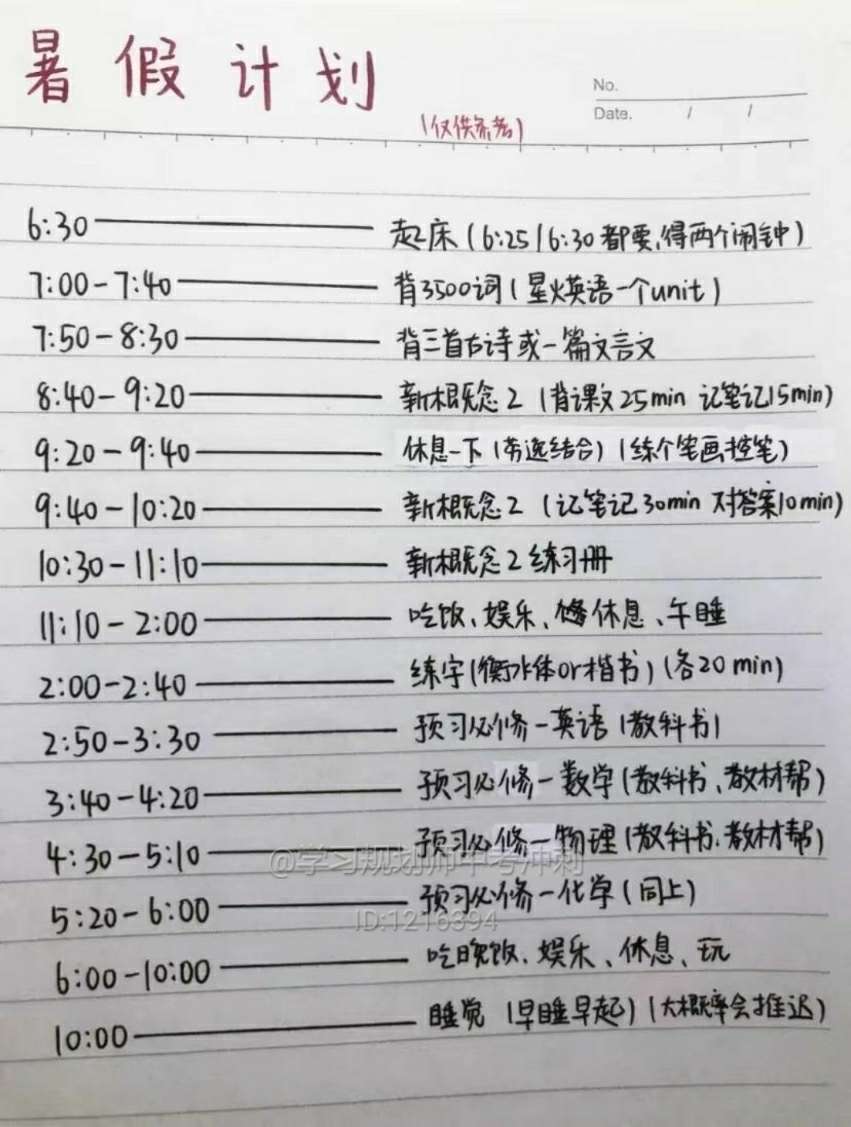 暑假计划
No.
Date. / /
(仅供参考)
6:30 起床(6:25/6:30都要,得两个闹钟)
7:00-7:40 背3500词(星火英语一个unit)
7:50-8:30 背三首古诗或一篇文言文
8:40-9:20 新概念2(背课文25min 记笔记15min)
9:20-9:40 休息一下(劳逸结合)(练个笔画控笔)
9:40-10:20 新概念2(记笔记30min 对答案10min)
10:30-11:10 新概念2练习册
11:10-2:00 吃饭、娱乐、休息、午睡
2:00-2:40 练字(衡水体or楷书)(各20min)
2:50-3:30 预习必修一英语(教科书)
3:40-4:20 预习必修一数学(教科书、教材帮)
4:30-5:10 预习必修一物理(教科书、教材帮)
@学习规划师中考冲刺
5:20-6:00 预习必修一化学(同上)
ID:1216394
6:00-10:00 吃晚饭、娱乐、休息、玩
10:00 睡觉(早睡早起)(大概率会推迟)